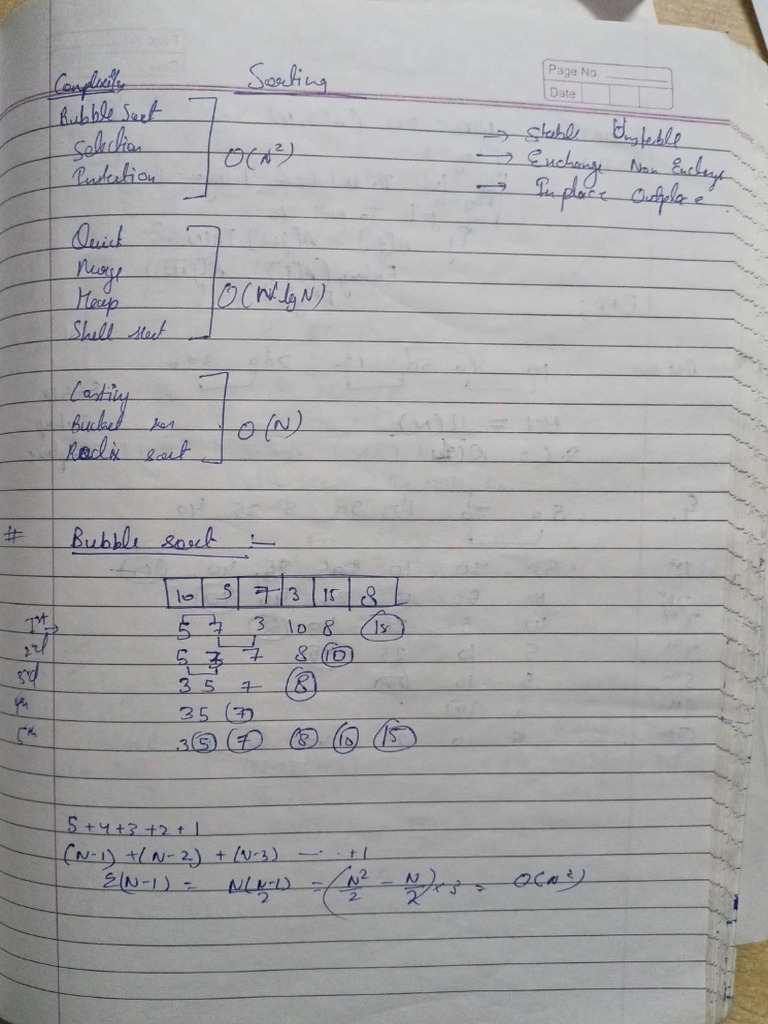 Complexity Sorting
Page No.
Date
Bubble Sort
Selection O(N²)
Insertion
→ Stable Unstable
→ Exchange Non Exchange
→ Inplace Outplace
Quick
Merge
Heap O(N lgN)
Shell sort
Bucket
Radix sort O(N)
# Bubble sort :-
10 5 7 3 15 8
1st → 5 7 3 10 8 15
2nd 5 3 7 8 10
3rd 3 5 7 8
4th 3 5 7
5th 3 5 7 8 10 15
5+4+3+2+1
(N-1) +(N-2) + (N-3) ---- +1
Σ(N-1) = N(N-1)/2 = (N²/2 - N/2)×3 = O(N²)